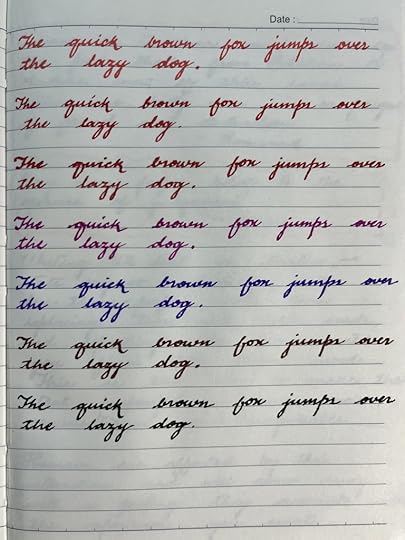 Date :
The quick brown fox jumps over
the lazy dog.
The quick brown fox jumps over
the lazy dog.
The quick brown fox jumps over
the lazy dog.
The quick brown fox jumps over
the lazy dog.
The quick brown fox jumps over
the lazy dog.
The quick brown fox jumps over
the lazy dog.
The quick brown fox jumps over
the lazy dog.